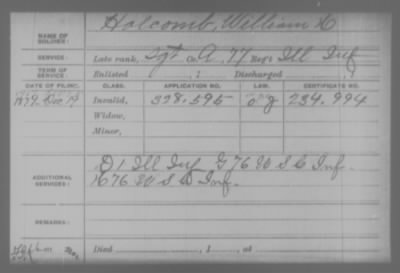 NAME OF SOLDIER: Holcomb, William H
SERVICE: Late rank, Sgt Co. A, 77 Reg't Ill Inf
TERM OF SERVICE: Enlisted , 1 Discharged , 1
DATE OF FILING. CLASS. APPLICATION NO. LAW. CERTIFICATE NO.
1879, Dec 19 Invalid, 328.595 234.994
Widow,
Minor,
ADDITIONAL SERVICES: D 1 Ill Inf G 76 U S C Inf.
76 U S C Inf.
REMARKS:
Died , 1 , at